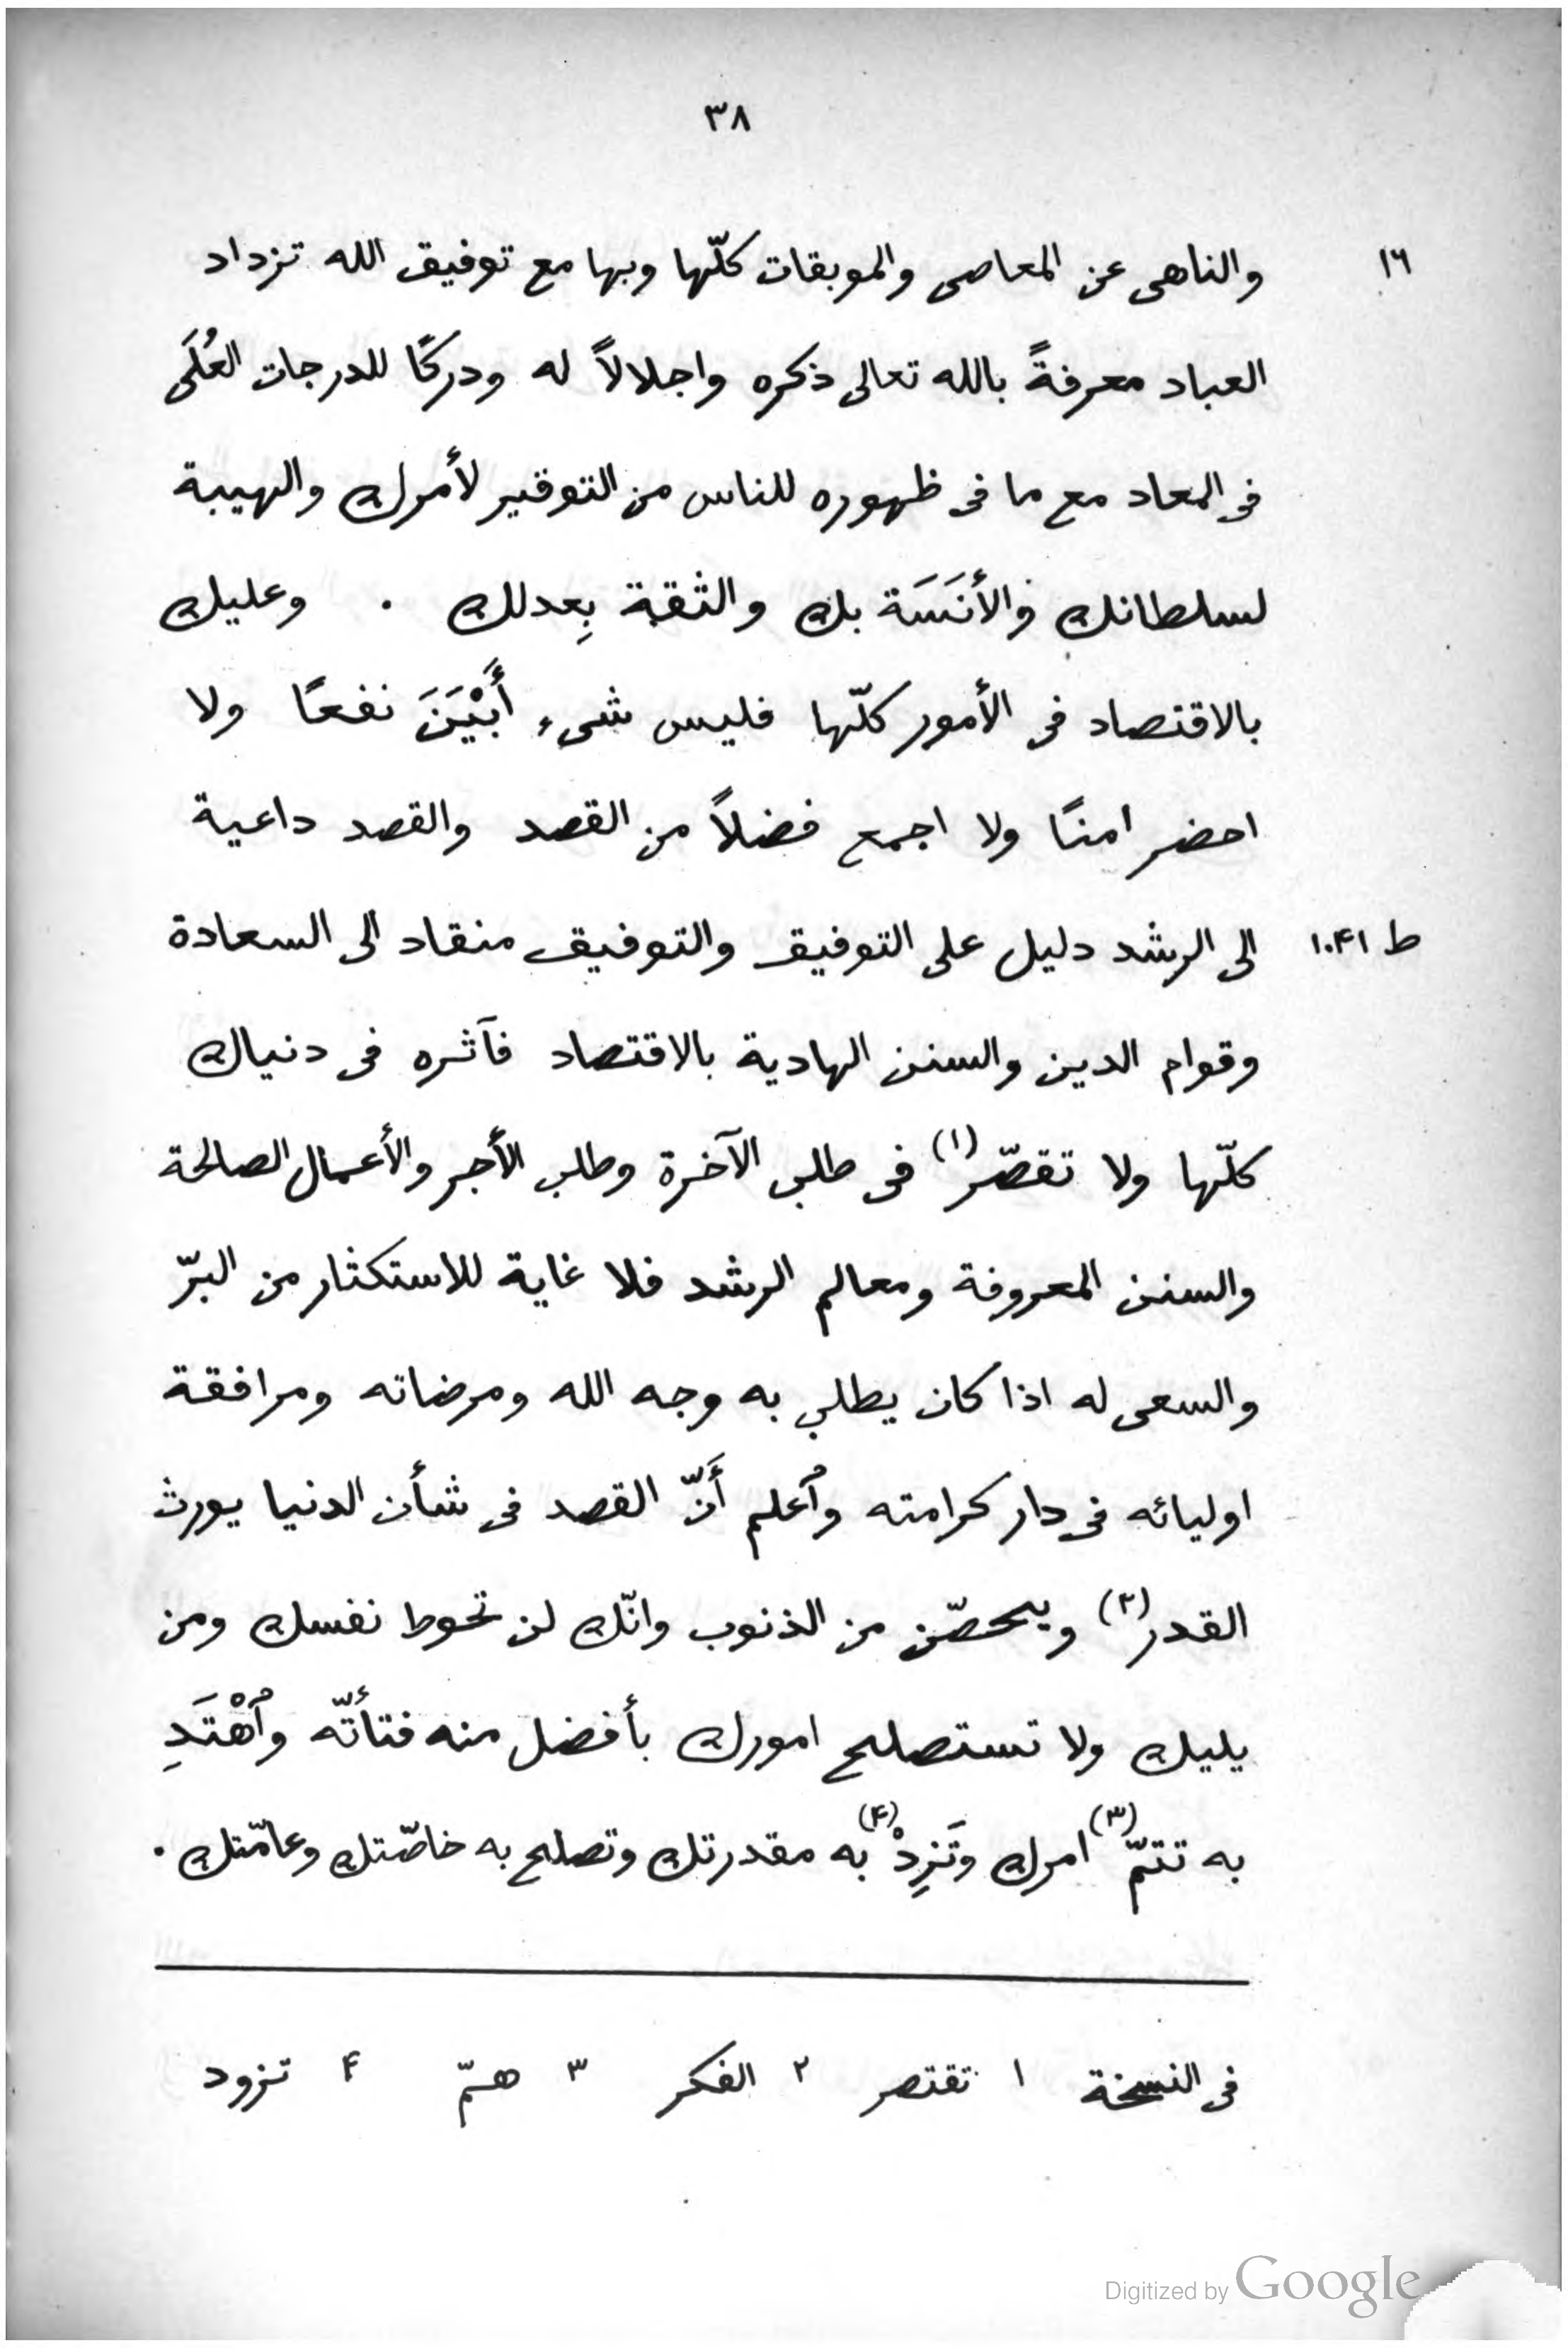 ٣٨
١٦ والناهى عن المعاصى والموبقات كلّها وبها مع توفيق الله تزداد
العباد معرفةً بالله تعالى ذكره واجلالاً له ودركًا للدرجات العُلَى
فى المعاد مع ما فى ظهوره للناس من التوقير لأمرك والهيبة
لسلطانك والأَنَسَة بك والثقة بِعدلك . وعليك
بالاقتصاد فى الأمور كلّها فليس شىء أَبْيَنَ نفعًا ولا
احضر امنًا ولا اجمع فضلاً من القصد والقصد داعية
ط ١٠۴١ الى الرشد دليل على التوفيق والتوفيق منقاد الى السعادة
وقوام الدين والسنن الهادية بالاقتصاد فآثره فى دنياك
كلّها ولا تقصّر (١) فى طلب الآخرة وطلب الأجر والأعمال الصالحة
والسنن المعروفة ومعالم الرشد فلا غاية للاستكثار من البرّ
والسعى له اذا كان يطلب به وجه الله ومرضاته ومرافقة
اوليائه فى دار كرامته وٱعلم أَنّ القصد فى شأن الدنيا يورث
القدر (٢) ويحصّن من الذنوب وانّك لن تحوط نفسك ومن
يليك ولا تستصلح امورك بأفضل منه فتأتّه وٱهْتَدِ
به تتمّ (٣) امرك وتَزِدْ (۴) به مقدرتك وتصلح به خاصّتك وعامّتك .
فى النسخة ١ تقتصر ٢ الفكر ٣ همّ ۴ تزود
Digitized by Google